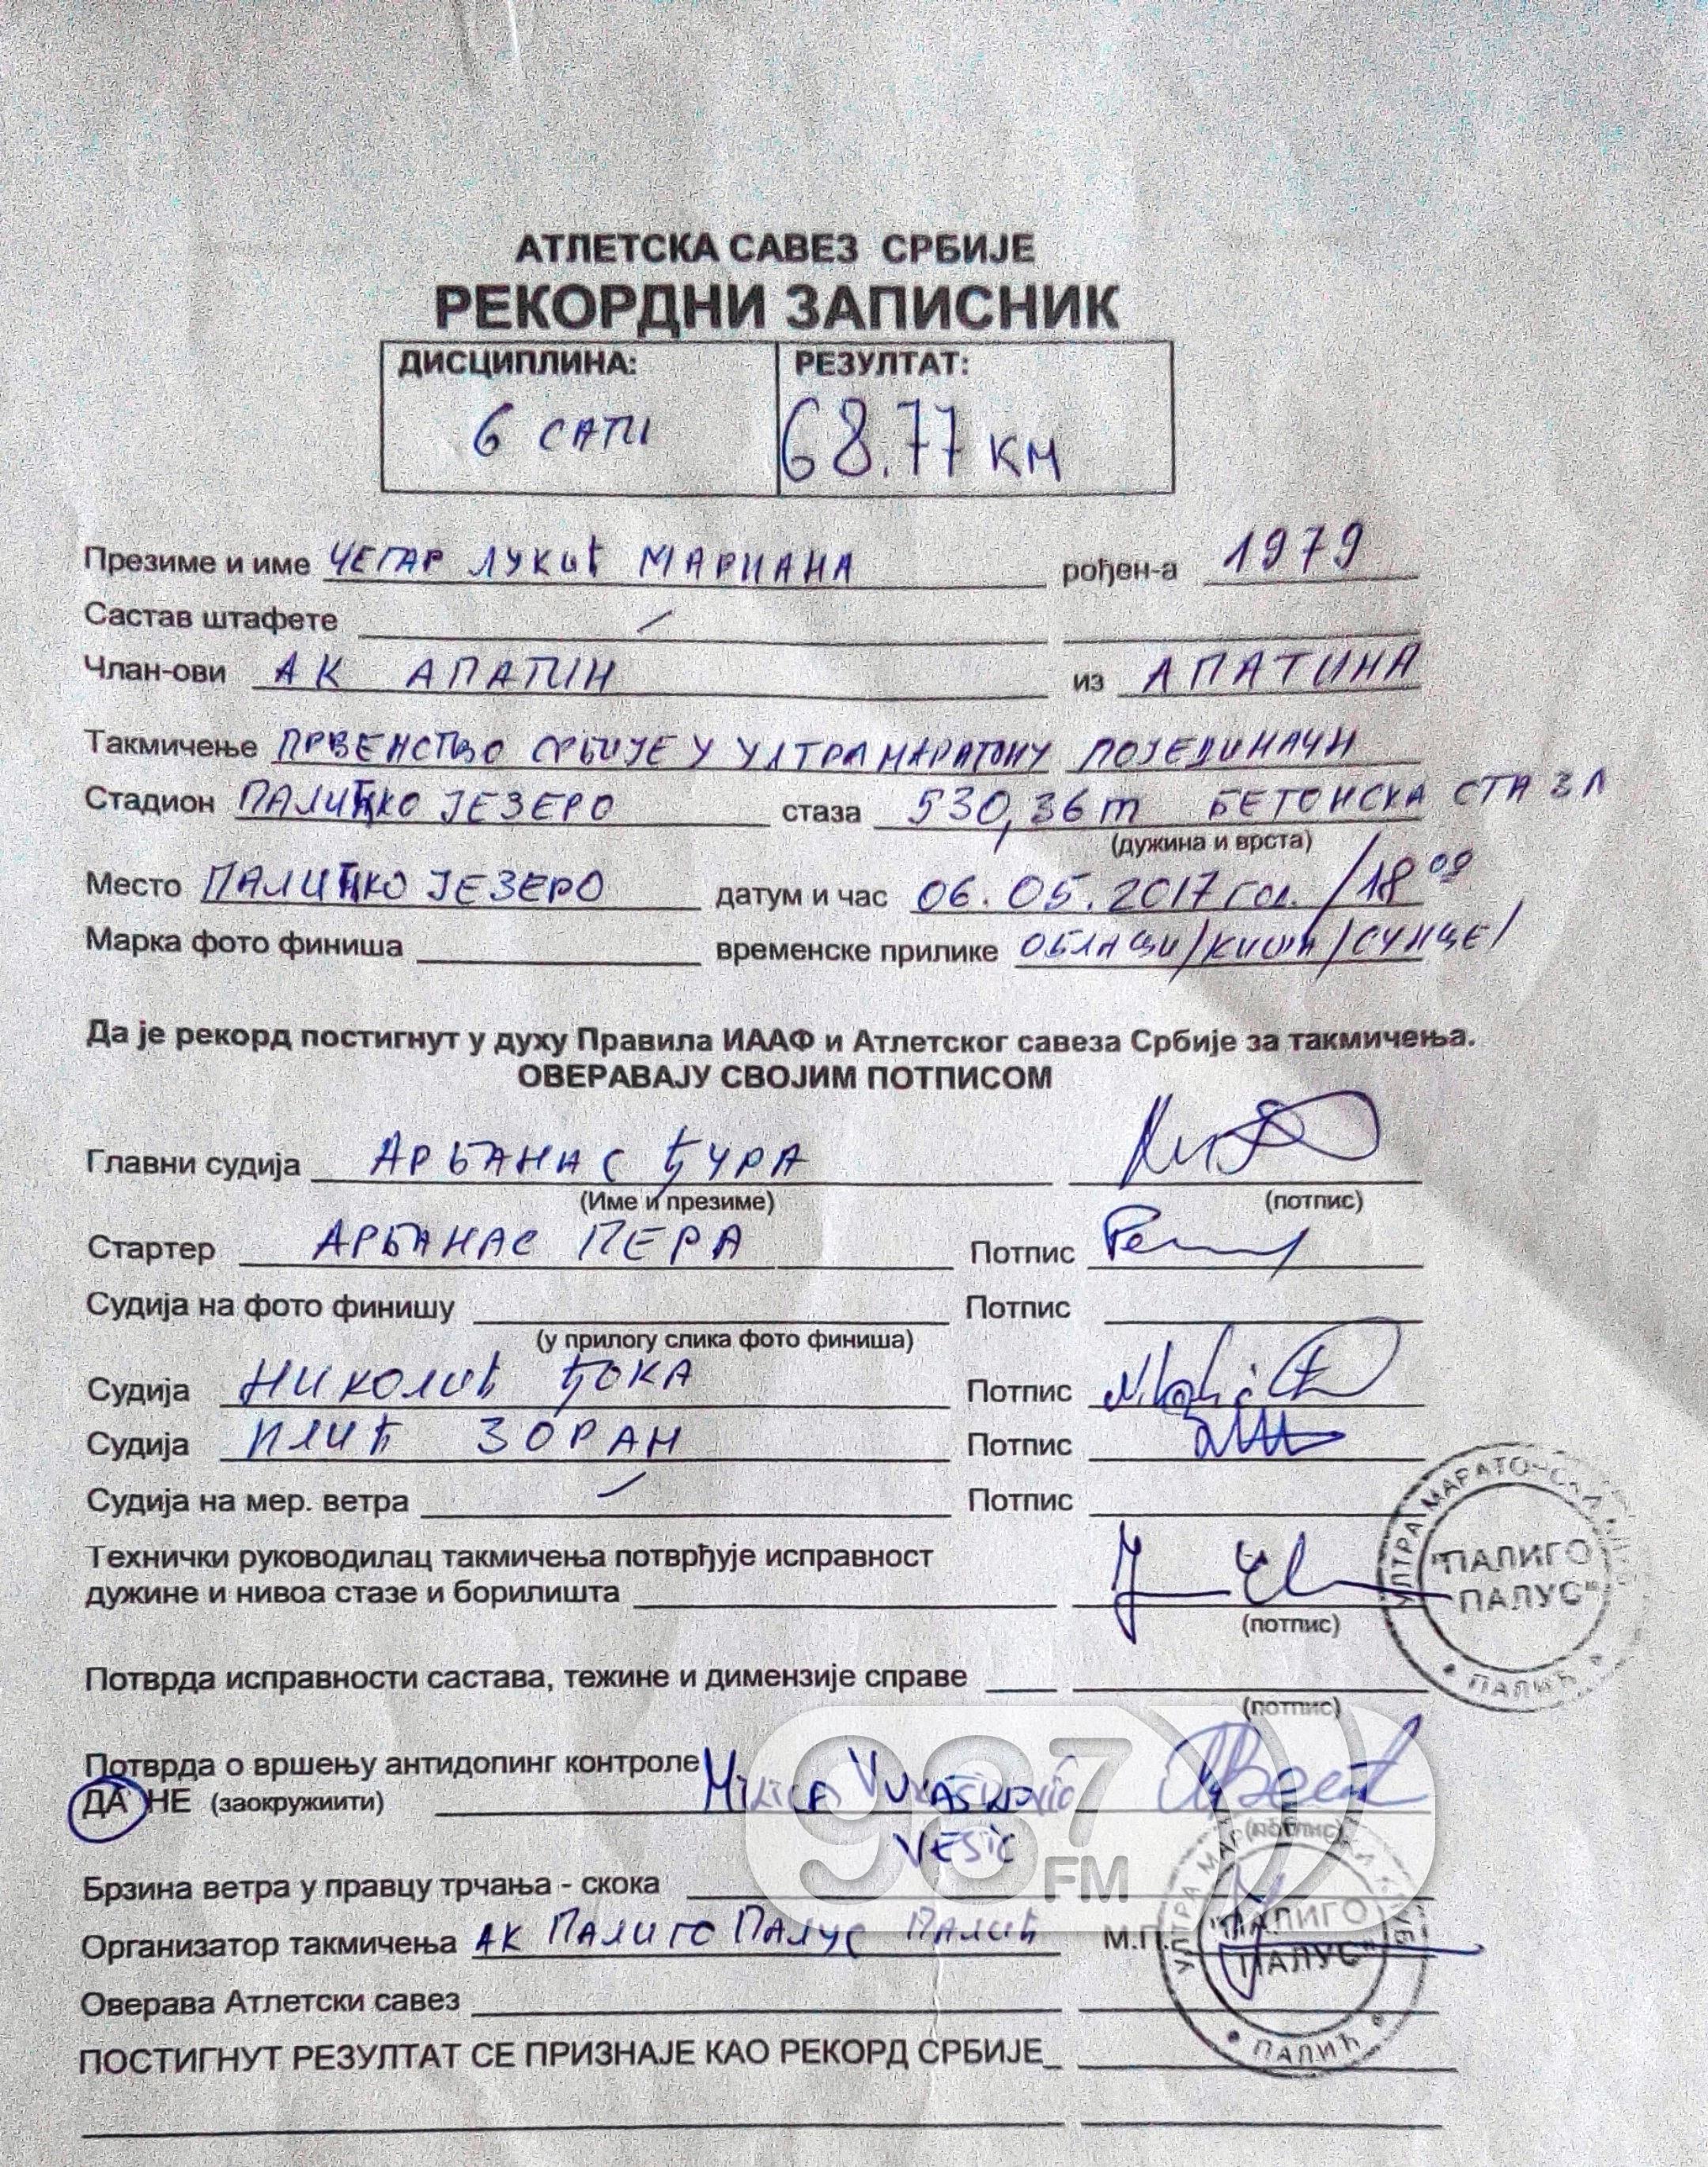 АТЛЕТСКА САВЕЗ СРБИЈЕ
РЕКОРДНИ ЗАПИСНИК
ДИСЦИПЛИНА: РЕЗУЛТАТ:
6 САТИ 68.77 КМ
Презиме и име ЧЕГАР ЛУКИЋ МАРИАНА рођен-а 1979
Састав штафете /
Члан-ови АК АПАТИН из АПАТИНА
Такмичење ПРВЕНСТВО СРБИЈЕ У УЛТРАМАРАТОНУ ПОЈЕДИНАЧН
Стадион ПАЛИЋКО ЈЕЗЕРО стаза 530,36m БЕТОНСКА СТАЗА
(дужина и врста)
Место ПАЛИЋКО ЈЕЗЕРО датум и час 06.05.2017 год. /18 09
Марка фото финиша временске прилике ОБЛАЦИ/КИША/СУНЦЕ/
Да је рекорд постигнут у духу Правила ИААФ и Атлетског савеза Србије за такмичења.
ОВЕРАВАЈУ СВОЈИМ ПОТПИСОМ
Главни судија АРБАНАС ЂУРА
(Име и презиме) (потпис)
Стартер АРБАНАС ПЕРА Потпис
Судија на фото финишу Потпис
(у прилогу слика фото финиша)
Судија НИКОЛИЋ ЂОКА Потпис
Судија ИЛИЋ ЗОРАН Потпис
Судија на мер. ветра / Потпис
Технички руководилац такмичења потврђује исправност
дужине и нивоа стазе и борилишта
(потпис)
УЛТРА МАРАТОНСКИ
"ПАЛИГО
ПАЛУС"
ПАЛИЋ
Потврда исправности састава, тежине и димензије справе
(потпис)
Потврда о вршењу антидопинг контроле
ДА НЕ (заокружиити) MILICA VUKAŠINOVIĆ
(потпис)
VESIĆ
987 FM
Брзина ветра у правцу трчања - скока
Организатор такмичења АК ПАЛИГО ПАЛУС ПАЛИЋ М.П.
УЛТРА МАРАТОНСКИ КЛУБ
"ПАЛИГО
ПАЛУС"
ПАЛИЋ
Оверава Атлетски савез
ПОСТИГНУТ РЕЗУЛТАТ СЕ ПРИЗНАЈЕ КАО РЕКОРД СРБИЈЕ